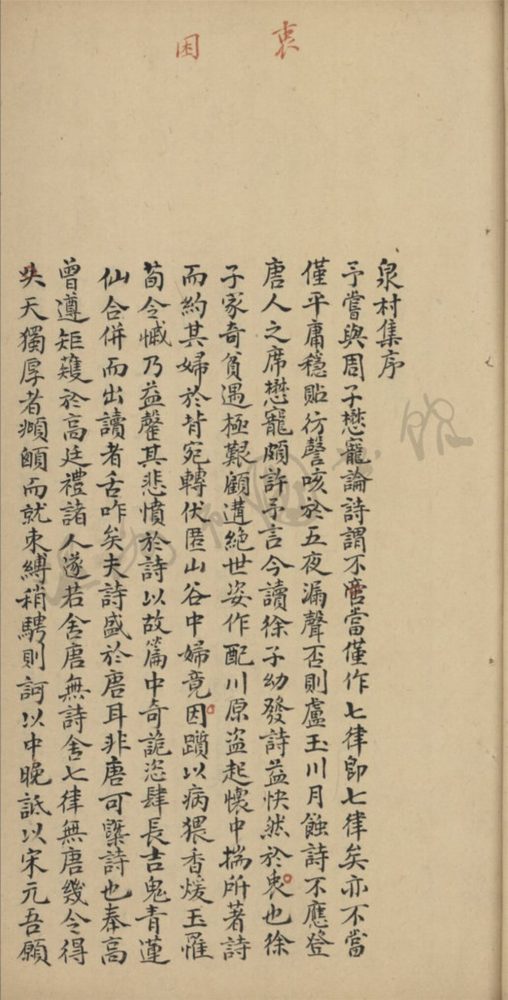 衷
困
泉村集序
予嘗與周子懋寵論詩謂不啻當僅作七律卽七律矣亦不當
僅平庸穩貼彷謦咳於五夜漏聲否則盧玉川月蝕詩不應登
唐人之席懋寵頗許予言今讀徐子幼發詩益怏然於衷也徐
子家奇貧遇極艱顧遘絕世姿作配川原盜起懷中揣所著詩
而約其婦於背宛轉伏匿山谷中婦竟因躓以病猥香煖玉罹
荀令慽乃益罄其悲憤於詩以故篇中奇詭恣肆長吉鬼青蓮
仙合併而出讀者舌咋矣夫詩盛於唐耳非唐可槩詩也奉高
曾遵矩矱於高廷禮諸人遂若舍唐無詩舍七律無唐幾令得
天獨厚者頻顣而就束縛稍騁則訶以中晚詆以宋元吾願